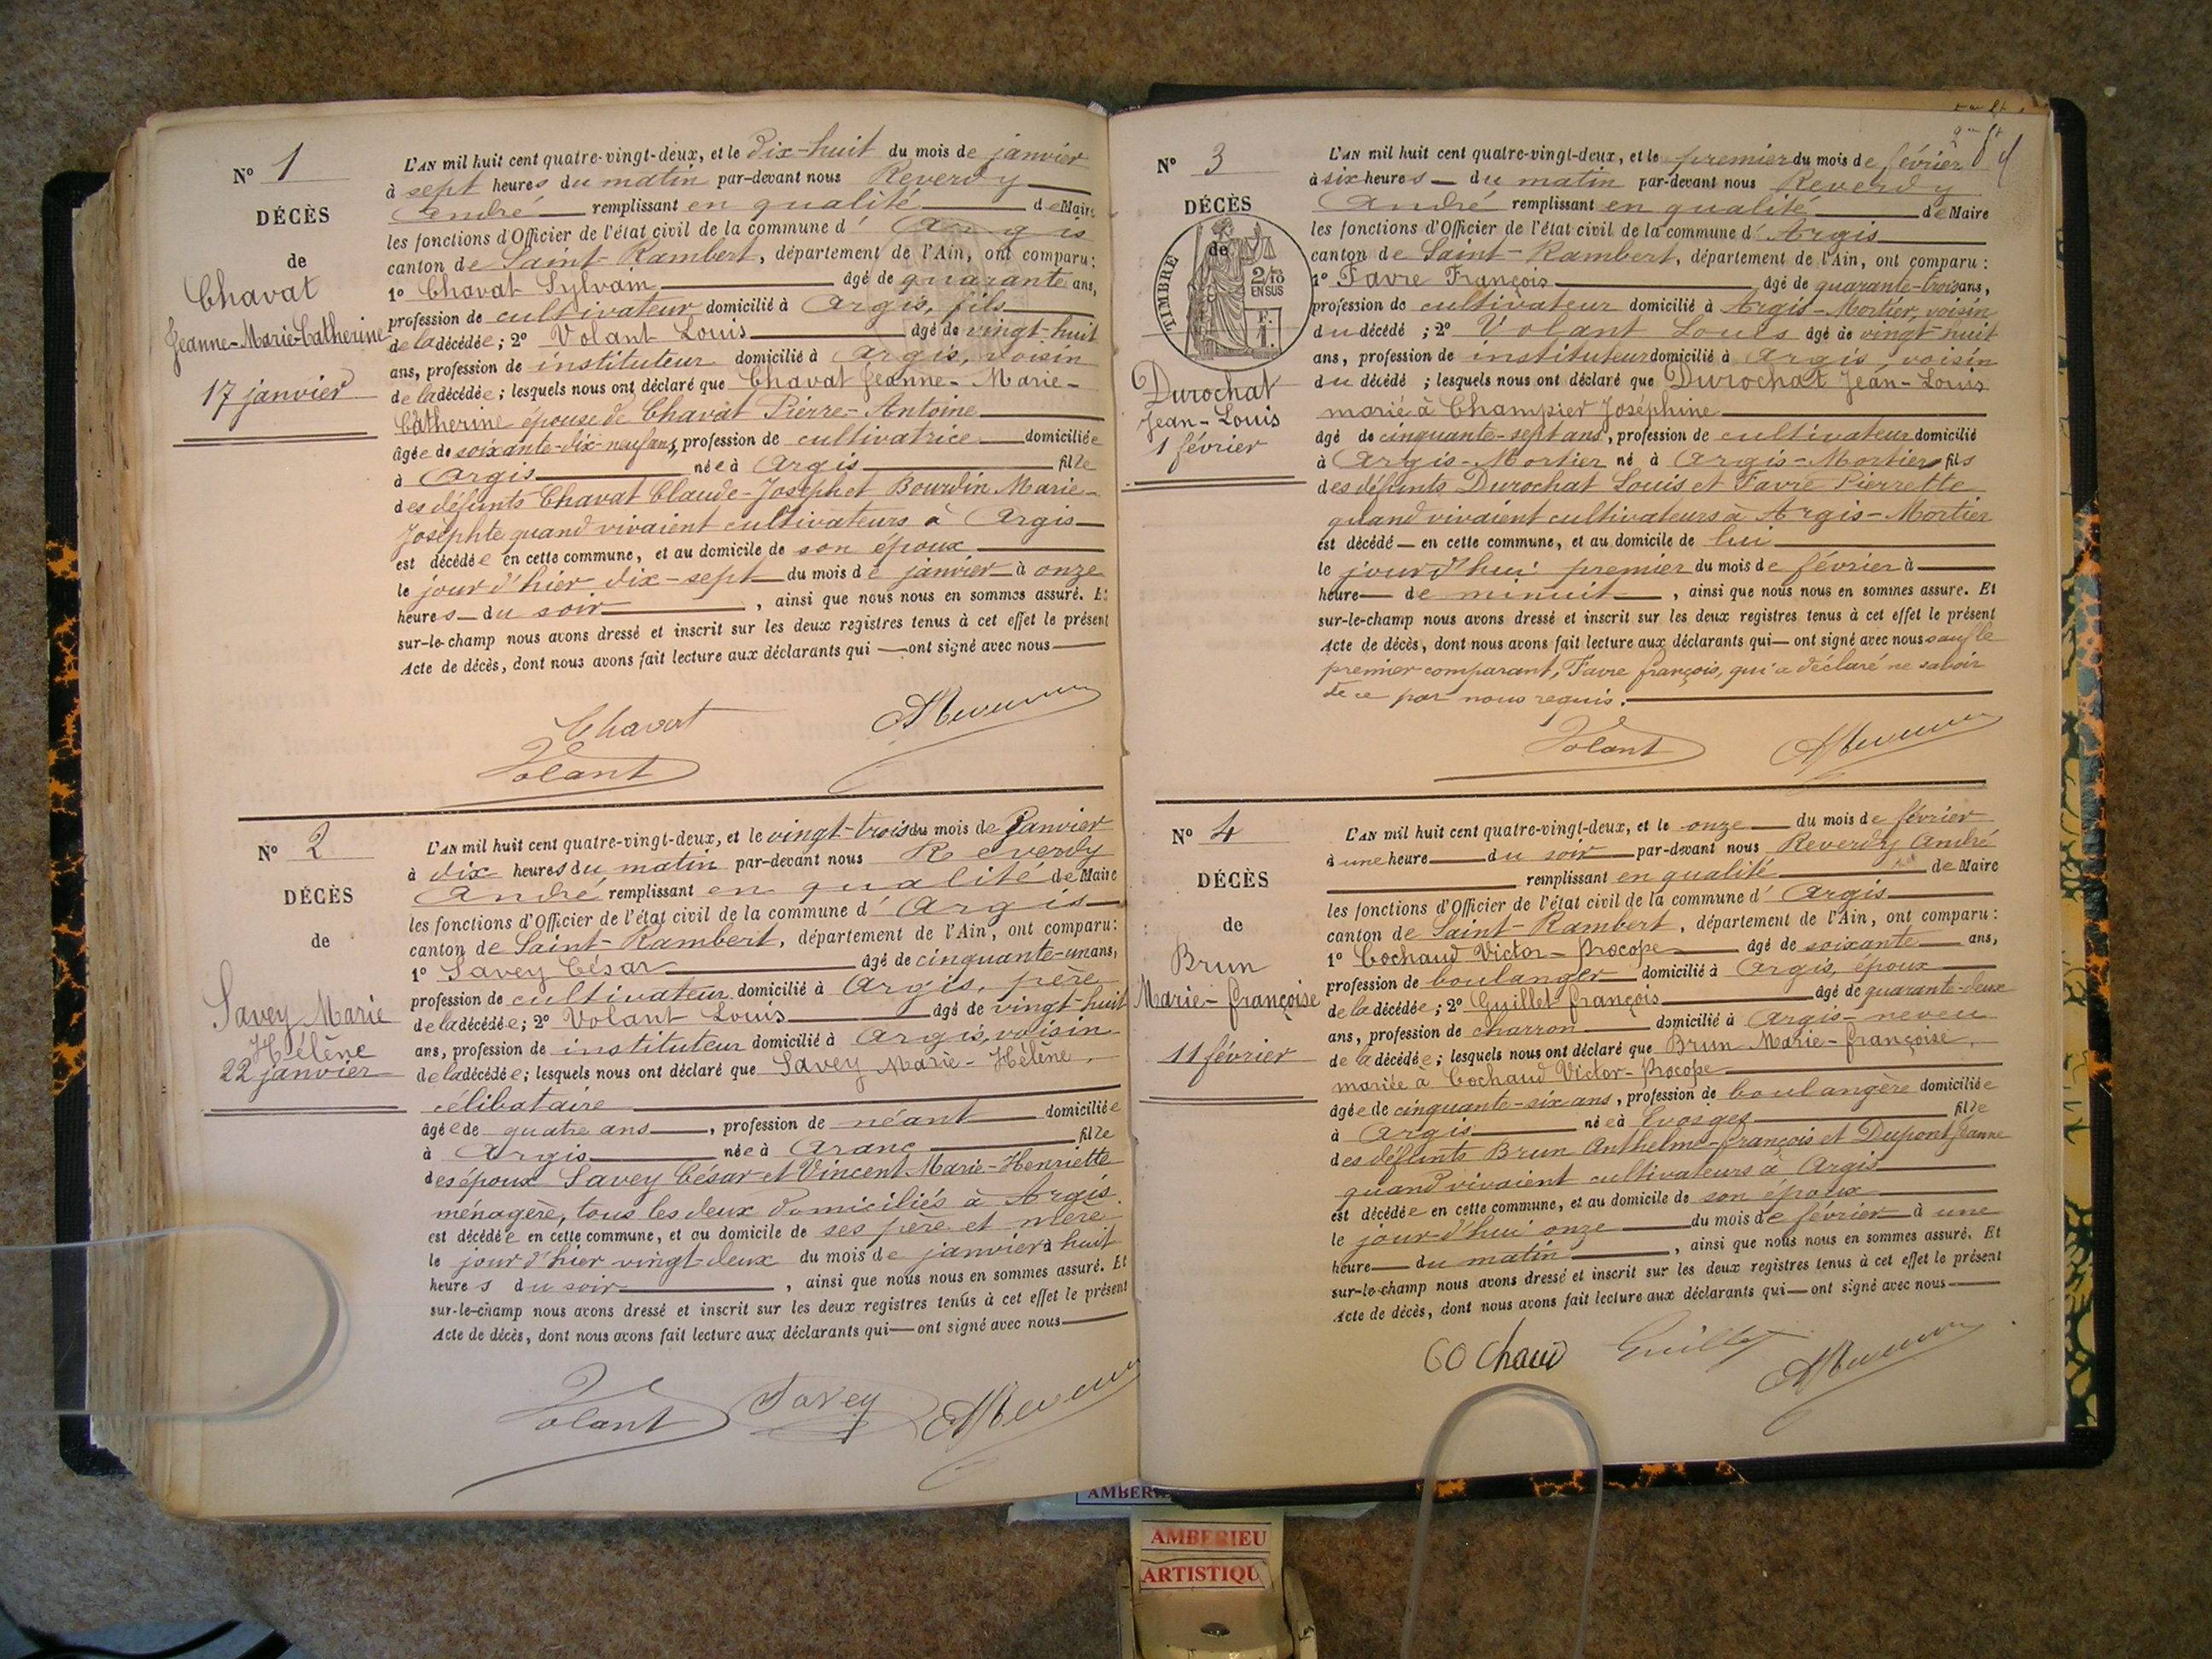 N° 1
DÉCÈS
de
Chavat
Jeanne-Marie-Catherine
17 janvier
L'AN mil huit cent quatre-vingt-deux, et le dix-huit du mois de janvier
à sept heures du matin par-devant nous Reverdy
André remplissant en qualité de Maire
les fonctions d'Officier de l'état civil de la commune d' Argis
canton de Saint-Rambert, département de l'Ain, ont comparu:
1° Chavat Sylvain âgé de quarante ans,
profession de cultivateur domicilié à Argis, fils
de la décédée; 2° Volant Louis âgé de vingt-huit
ans, profession de instituteur domicilié à Argis, voisin
de la décédée; lesquels nous ont déclaré que Chavat Jeanne-Marie-
Catherine épouse de Chavat Pierre-Antoine
âgée de soixante-dix-neuf ans, profession de cultivatrice domiciliée
à Argis née à Argis fille
des défunts Chavat Claude-Joseph et Bourdin Marie-
Josephte quand vivaient cultivateurs à Argis
est décédée en cette commune, et au domicile de son époux
le jour d'hier dix-sept du mois de janvier à onze
heures du soir, ainsi que nous nous en sommes assuré. Et
sur-le-champ nous avons dressé et inscrit sur les deux registres tenus à cet effet le présent
Acte de décès, dont nous avons fait lecture aux déclarants qui ont signé avec nous
Chavat
Volant
N° 2
DÉCÈS
de
Savey Marie
Hélène
22 janvier
L'AN mil huit cent quatre-vingt-deux, et le vingt-trois du mois de Janvier
à dix heures du matin par-devant nous Reverdy
André remplissant en qualité de Maire
les fonctions d'Officier de l'état civil de la commune d' Argis
canton de Saint-Rambert, département de l'Ain, ont comparu:
1° Savey César âgé de cinquante-un ans,
profession de cultivateur domicilié à Argis, père
de la décédée; 2° Volant Louis âgé de vingt-huit
ans, profession de instituteur domicilié à Argis, voisin
de la décédée; lesquels nous ont déclaré que Savey Marie-Hélène,
célibataire
âgée de quatre ans, profession de néant domiciliée
à Argis née à Aranc fille
des époux Savey César et Vincent Marie-Henriette
ménagère, tous les deux domiciliés à Argis
est décédée en cette commune, et au domicile de ses père et mère
le jour d'hier vingt-deux du mois de janvier à huit
heures du soir, ainsi que nous nous en sommes assuré. Et
sur-le-champ nous avons dressé et inscrit sur les deux registres tenus à cet effet le présent
Acte de décès, dont nous avons fait lecture aux déclarants qui ont signé avec nous
Volant Savey
N° 3
DÉCÈS
de
TIMBRE
2/10
EN SUS
Durochat
Jean-Louis
1 février
L'AN mil huit cent quatre-vingt-deux, et le premier du mois de février
à six heures du matin par-devant nous Reverdy
André remplissant en qualité de Maire
les fonctions d'Officier de l'état civil de la commune d' Argis
canton de Saint-Rambert, département de l'Ain, ont comparu:
1° Favre François âgé de quarante-trois ans,
profession de cultivateur domicilié à Argis-Mortier, voisin
du décédé; 2° Volant Louis âgé de vingt-huit
ans, profession de instituteur domicilié à Argis, voisin
du décédé; lesquels nous ont déclaré que Durochat Jean-Louis
marié à Champier Joséphine
âgé de cinquante-sept ans, profession de cultivateur domicilié
à Argis-Mortier né à Argis-Mortier fils
des défunts Durochat Louis et Favre Pierrette
quand vivaient cultivateurs à Argis-Mortier
est décédé en cette commune, et au domicile de lui
le jour d'hui premier du mois de février à
heure de minuit, ainsi que nous nous en sommes assuré. Et
sur-le-champ nous avons dressé et inscrit sur les deux registres tenus à cet effet le présent
Acte de décès, dont nous avons fait lecture aux déclarants qui ont signé avec nous sauf le
premier comparant, Favre françois, qui a déclaré ne savoir
de ce par nous requis.
Volant
N° 4
DÉCÈS
de
Brun
Marie-françoise
11 février
L'AN mil huit cent quatre-vingt-deux, et le onze du mois de février
à une heure du soir par-devant nous Reverdy André
remplissant en qualité de Maire
les fonctions d'Officier de l'état civil de la commune d' Argis
canton de Saint-Rambert, département de l'Ain, ont comparu:
1° Cochaud Victor-Procope âgé de soixante ans,
profession de boulanger domicilié à Argis, époux
de la décédée; 2° Guillet françois âgé de quarante-deux
ans, profession de charron domicilié à Argis-neveu
de la décédée; lesquels nous ont déclaré que Brun Marie-françoise,
mariée à Cochaud Victor-Procope
âgée de cinquante-six ans, profession de boulangère domiciliée
à Argis née à Evosges fille
des défunts Brun Anthelme-françois et Dupont Jeanne
quand vivaient cultivateurs à Argis
est décédée en cette commune, et au domicile de son époux
le jour-d'hui onze du mois de février à une
heure du matin, ainsi que nous nous en sommes assuré. Et
sur-le-champ nous avons dressé et inscrit sur les deux registres tenus à cet effet le présent
Acte de décès, dont nous avons fait lecture aux déclarants qui ont signé avec nous
COchaud Guillet
AMBERIEU
ARTISTIQU